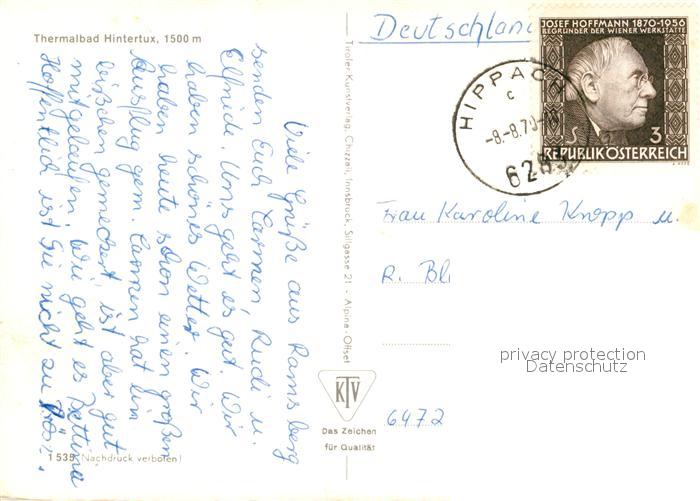 Thermalbad Hintertux, 1500 m
Viele Grüße aus Ramsberg
senden Euch Carmen, Rudi u.
Elfriede. Uns geht es gut. Wir
haben schönes Wetter. Wir
haben heute schon einen großen
Ausflug gem. Carmen hat ein
bißchen gemeckert, ist aber gut
mitgelaufen. Wie geht es Bettina
Hoffentlich ist Sie nicht zu
1 535 Nachdruck verboten!
Tiroler Kunstverlag, Chizzali, Innsbruck, Sillgasse 21 - Alpina-Offset
KTV
Das Zeichen
für Qualität
Deutschland
JOSEF HOFFMANN 1870-1956
BEGRÜNDER DER WIENER WERKSTÄTTE
S 3
REPUBLIK ÖSTERREICH
HIPPACH
c
-8.-8.70
628
Frau Karoline Knopp u.
R. Bl
privacy protection
Datenschutz
6472